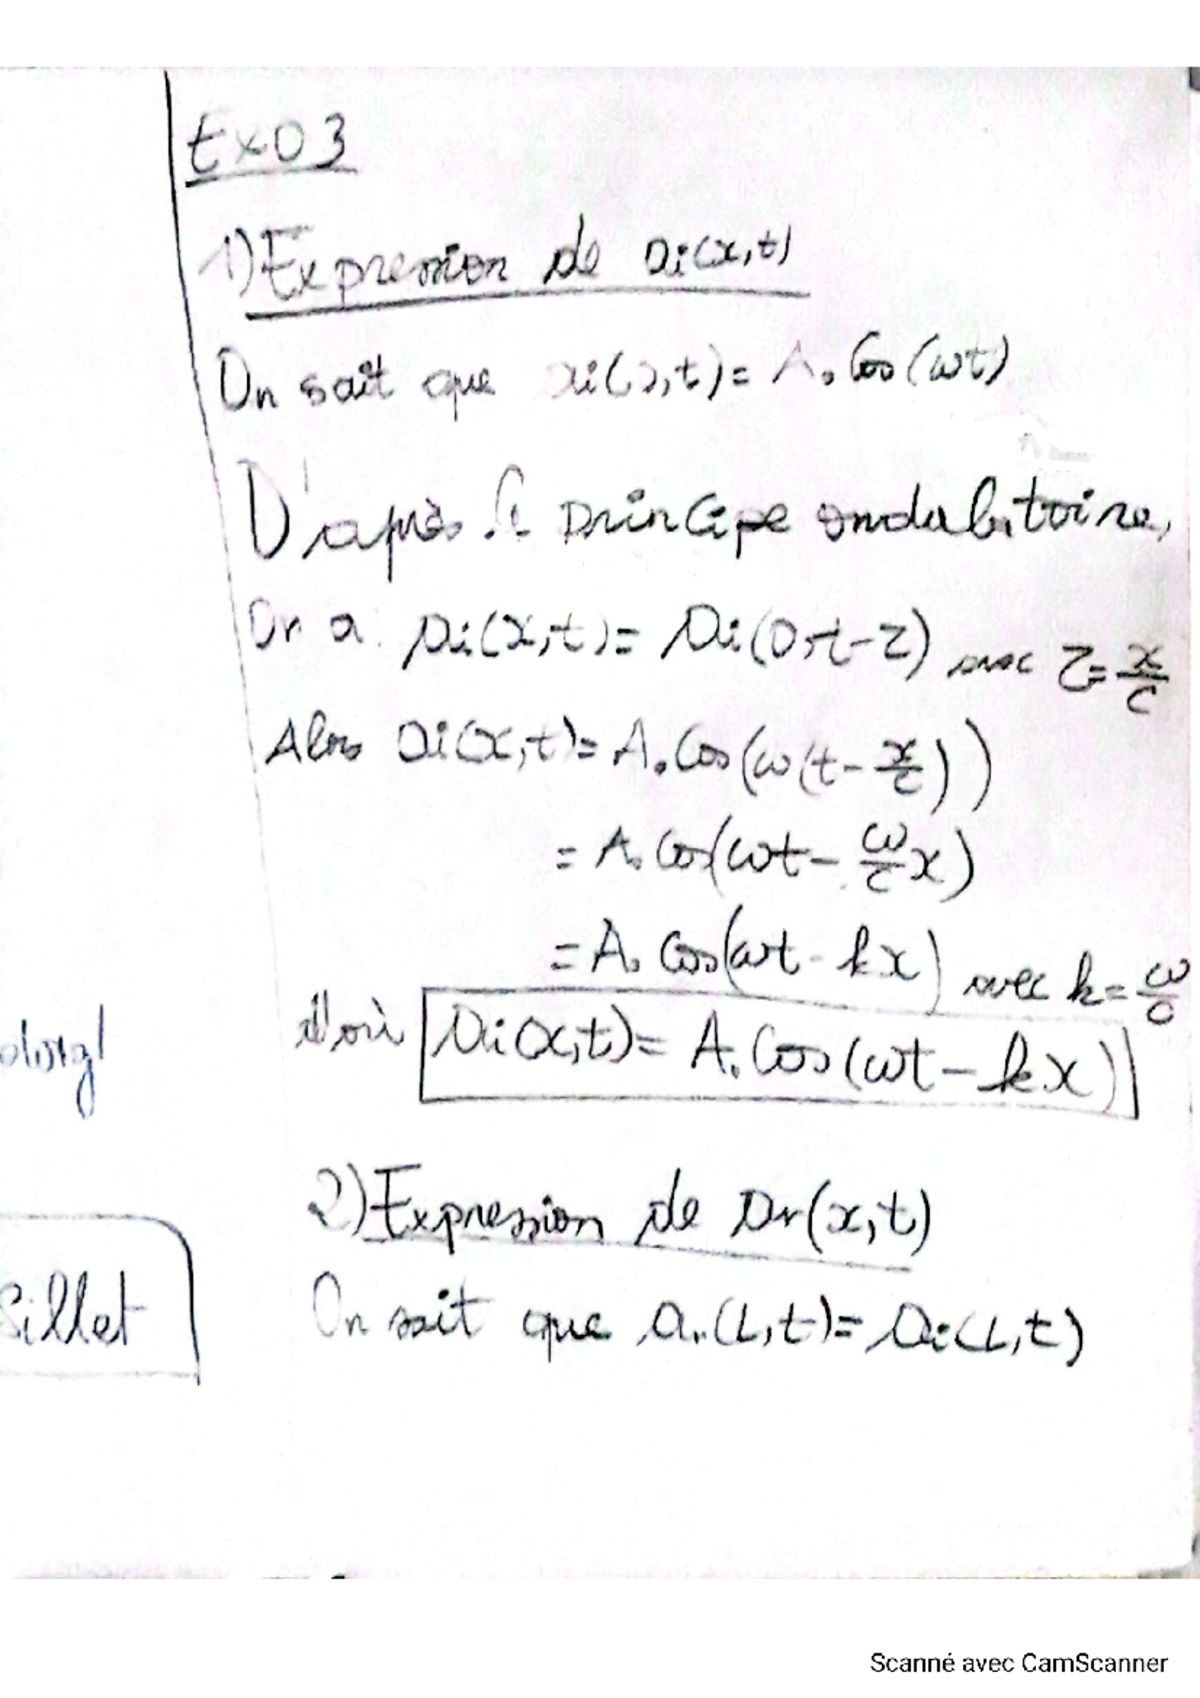 Exo 3
1) Expression de si(x,t)
On sait que si(o,t) = A₀ Cos(ωt)
D'après le principe ondulatoire,
On a si(x,t) = si(0,t-τ) avec τ = x/c
Alors si(x,t) = A₀ Cos(ω(t - x/c))
= A₀ Cos(ωt - ω/c x)
= A₀ Cos(ωt - kx) avec k = ω/c
d'où si(x,t) = A₀ Cos(ωt - kx)
2) Expression de sr(x,t)
On sait que sr(L,t) = si(L,t)
Sillet
Scanné avec CamScanner